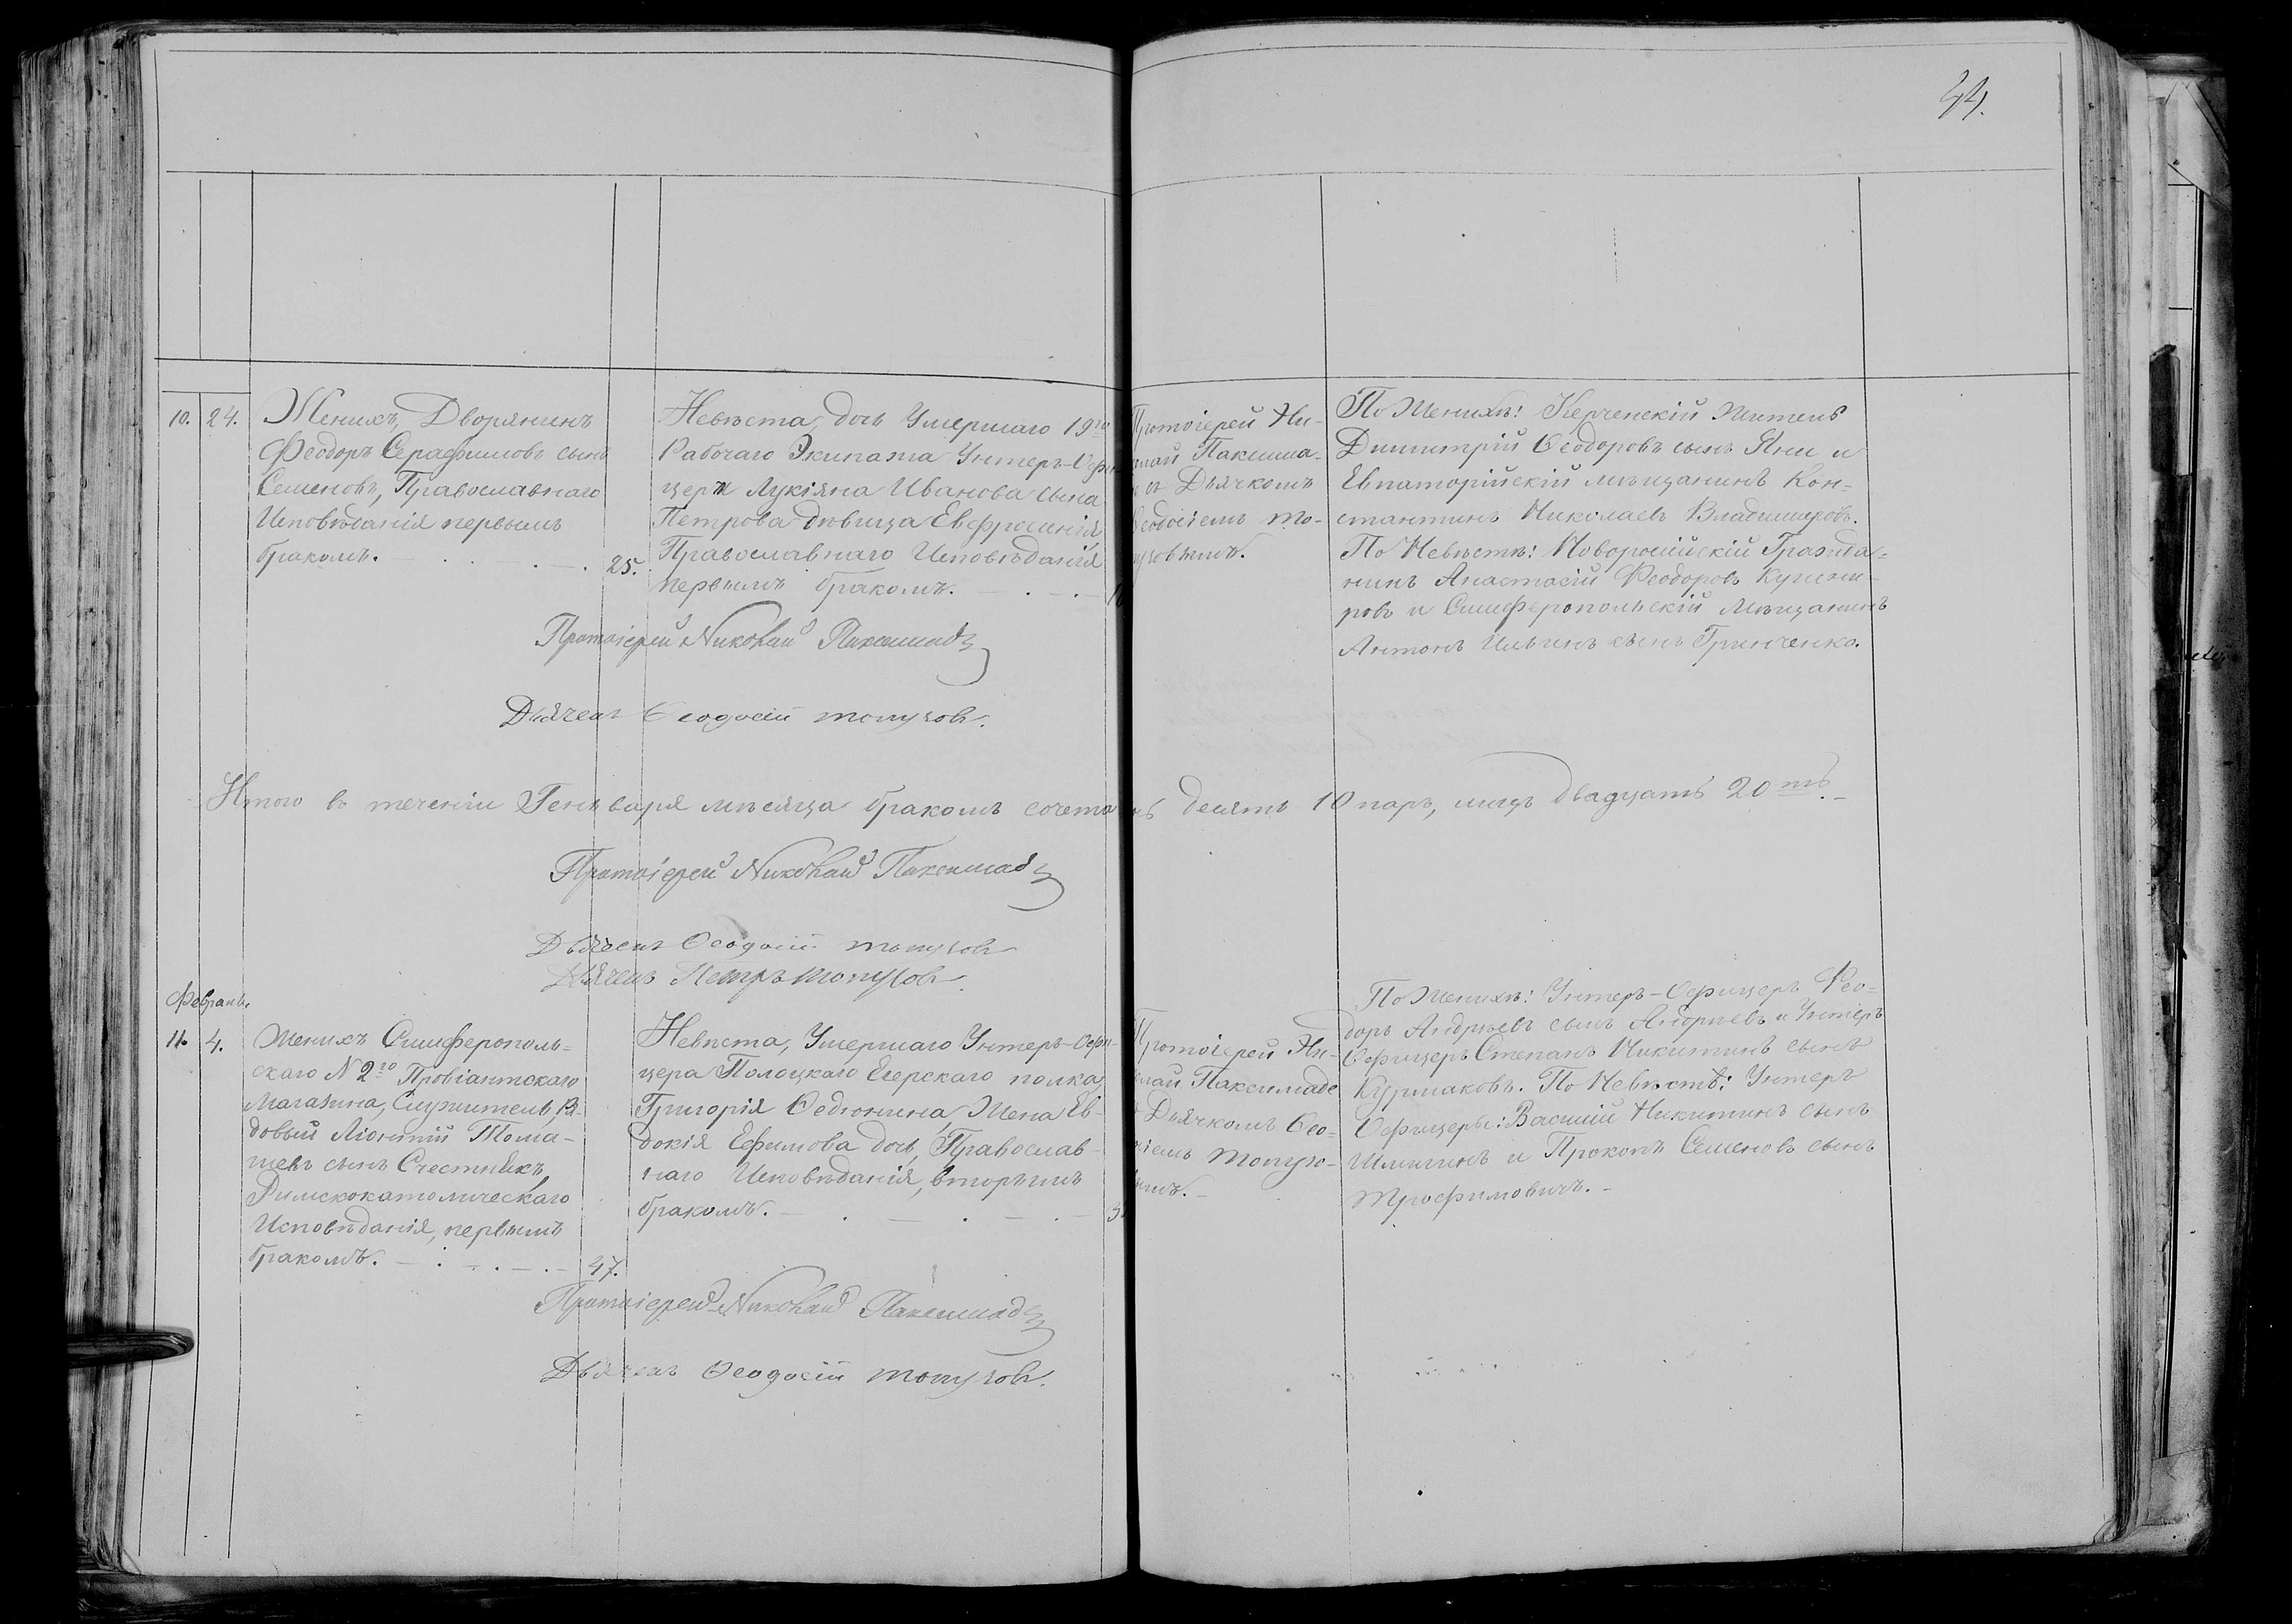 44.
10. 24. Женихъ, Дворянинъ
Феодоръ Серафимовъ сынъ
Семеновъ, Православнаго
Исповѣданія первымъ
бракомъ. 25.
Невѣста, дочь Умершаго 19го
Рабочаго Экипажа Унтеръ-Офи
цера Лукіяна Иванова сына
Петрова дѣвица Евфросинія
Православнаго Исповѣданія
первымъ бракомъ.
Протоіерей Ни-
колай Паксима-
съ Дьячкомъ
Ѳеодосіемъ То-
пузовымъ.
По Женихѣ: Керченскій житель
Димитрій Ѳеодоровъ сынъ Яни и
Евпаторійскій мѣщанинъ Кон-
стантинъ Николаевъ Владимировъ.
По Невѣстѣ: Новоросійскій Гражда-
нинъ Анастасій Феодоровъ
ровъ и Симферопольскій Мѣщанинъ
Антонъ Ильинъ сынъ Гринченко.
Протоіерей Николай Паксимадъ
Дьячекъ Ѳеодосій Топузовъ.
Итого въ теченіи Генваря мѣсяца бракомъ сочета нъ десять 10 паръ, лицъ двадцать 20ть.
Протоіерей Николай Паксимадъ
Дьячекъ Ѳеодосій Топузовъ
Дьячекъ Петръ Топузовъ.
Февраль.
11. 4. Женихъ Симферополь-
скаго N 2го Провіантскаго
Магазина, Служитель, Ря-
довый Ліонтій Тома-
шевъ сынъ Счестныхъ,
Римскокатолическаго
Исповѣданія, первымъ
бракомъ. 47.
Невѣста, Умершаго Унтеръ-Офи-
цера Полоцкаго Егерскаго полка
Григорія Ѳедюнина, Жена Ев-
докія Ефимова дочь, Православ-
наго Исповѣданія, вторымъ
бракомъ.
Протоіерей Ни-
колай Паксимаде
Дьячкомъ Ѳео-
сіемъ Топузо-
вымъ.
По Женихѣ: Унтеръ-Офицеръ Фео-
доръ Андрѣевъ сынъ Андрѣевъ и Унтеръ
Офицеръ Степанъ Никитинъ сынъ
Курмаковъ. По Невѣстѣ: Унтеръ
Офицеры: Василій Никитинъ сынъ
Шлыгинъ и Прокопъ Семеновъ сынъ
Трофимовичъ.
Протоіерей Николай Паксимадъ
Дьячекъ Ѳеодосій Топузовъ.